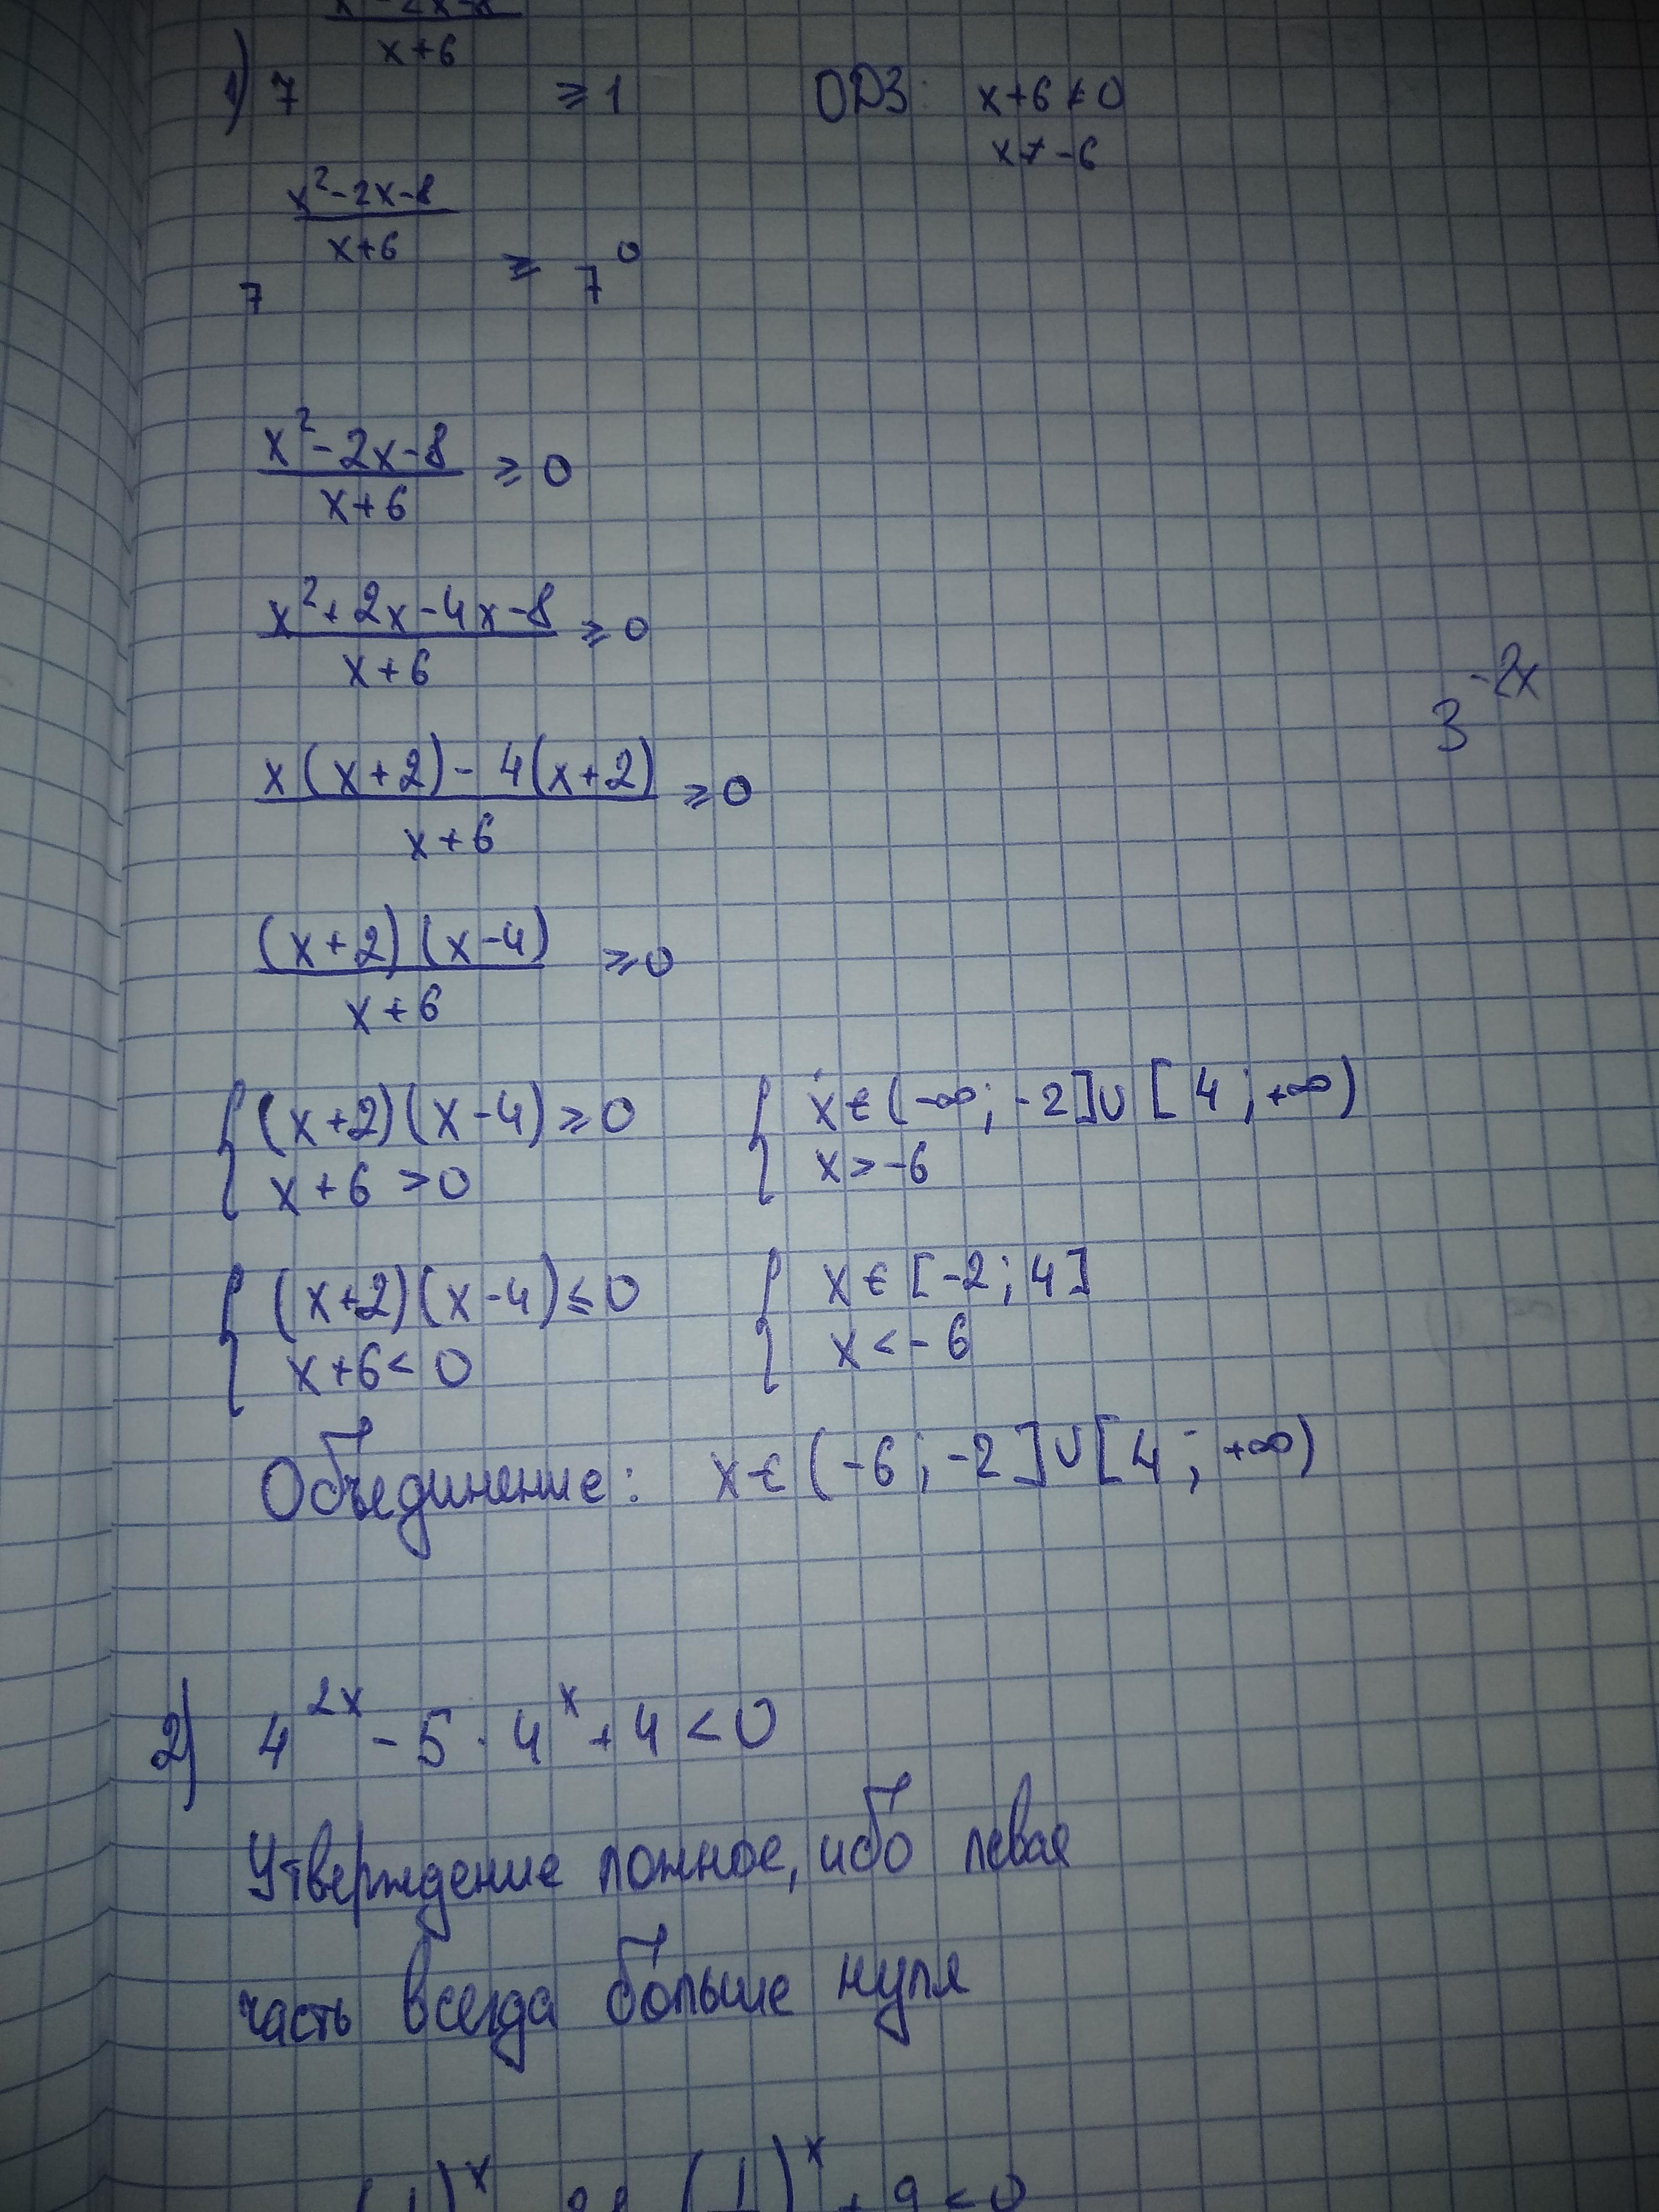 x²-2x-8
x+6
1) 7 ≥ 1 ОДЗ: x+6 ≠ 0
x ≠ -6
x²-2x-8
x+6
7 ≥ 7⁰
x²-2x-8
x+6 ≥ 0
x²+2x-4x-8
x+6 ≥ 0
3^-2x
x(x+2)-4(x+2)
x+6 ≥ 0
(x+2)(x-4)
x+6 ≥ 0
{ (x+2)(x-4) ≥ 0 { x ∈ (-∞; -2] ∪ [4; +∞)
x+6 > 0 x > -6
{ (x+2)(x-4) ≤ 0 { x ∈ [-2; 4]
x+6 < 0 x < -6
Объединение: x ∈ (-6; -2] ∪ [4; +∞)
2) 4^2x - 5 · 4^x + 4 < 0
Утверждение ложное, ибо левая
часть всегда больше нуля